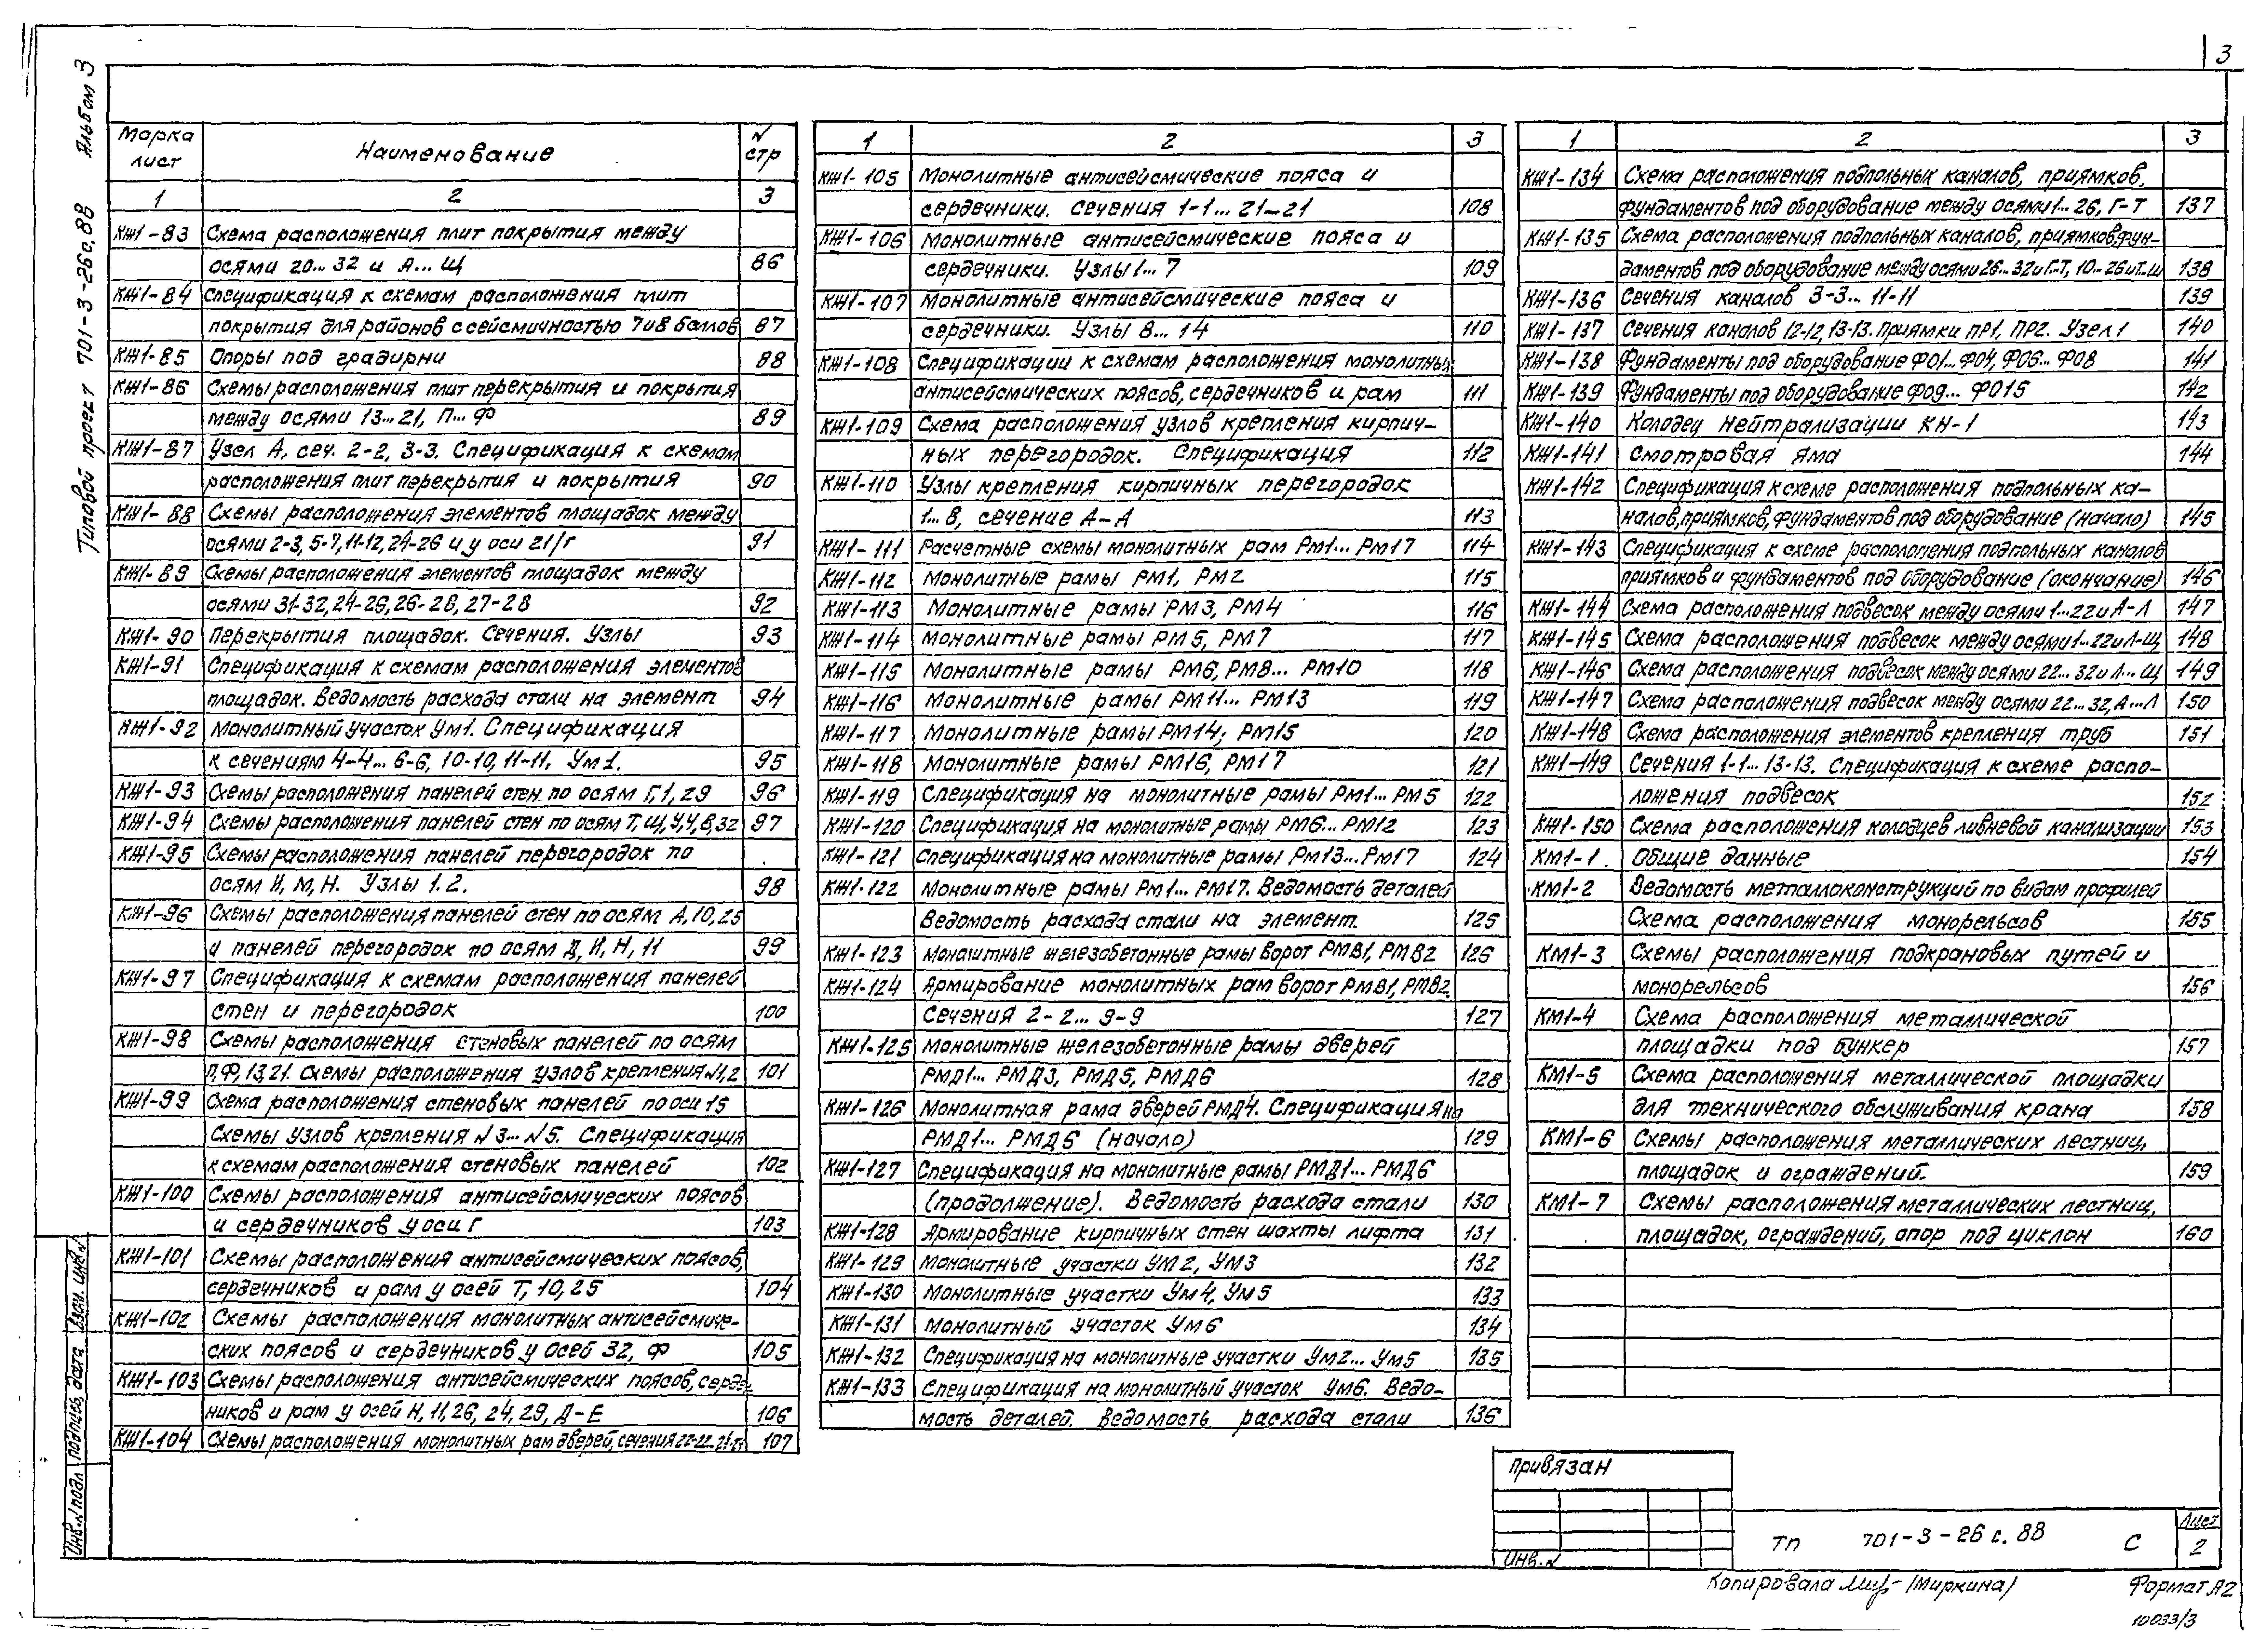 3
Типовой проект 701-3-26с.88 Альбом 3
Марка лист Наименование N стр
1 2 3
КЖ1-83 Схема расположения плит покрытия между
осями 20...32 и А...Щ 86
КЖ1-84 Спецификация к схемам расположения плит
покрытия для районов с сейсмичностью 7и8 баллов 87
КЖ1-85 Опоры под градирни 88
КЖ1-86 Схемы расположения плит перекрытия и покрытия
между осями 13...21, П...Ф 89
КЖ1-87 Узел А, сеч. 2-2, 3-3. Спецификация к схемам
расположения плит перекрытия и покрытия 90
КЖ1-88 Схемы расположения элементов площадок между
осями 2-3, 5-7, 11-12, 24-26 и у оси 21/Г 91
КЖ1-89 Схемы расположения элементов площадок между
осями 31-32, 24-26, 26-28, 27-28 92
КЖ1-90 Перекрытия площадок. Сечения. Узлы 93
КЖ1-91 Спецификация к схемам расположения элементов
площадок. Ведомость расхода стали на элемент 94
КЖ1-92 Монолитный участок Ум1. Спецификация
к сечениям 4-4... 6-6, 10-10, 11-11, Ум1. 95
КЖ1-93 Схемы расположения панелей стен по осям Г, 1, 29 96
КЖ1-94 Схемы расположения панелей стен по осям Т, Щ, У, Ч, 8, 32 97
КЖ1-95 Схемы расположения панелей перегородок по
осям И, М, Н. Узлы 1. 2. 98
КЖ1-96 Схемы расположения панелей стен по осям А, 10, 25
и панелей перегородок по осям Д, И, Н, 11 99
КЖ1-97 Спецификация к схемам расположения панелей
стен и перегородок 100
КЖ1-98 Схемы расположения стеновых панелей по осям
П, Ф, 13, 21. Схемы расположения узлов крепления N1, 2 101
КЖ1-99 Схема расположения стеновых панелей по оси 15
Схемы узлов крепления N3...N5. Спецификация
к схемам расположения стеновых панелей 102
КЖ1-100 Схемы расположения антисейсмических поясов
и сердечников у оси Г 103
КЖ1-101 Схемы расположения антисейсмических поясов,
сердечников и рам у осей Т, 10, 25 104
КЖ1-102 Схемы расположения монолитных антисейсмиче-
ских поясов и сердечников у осей 32, Ф 105
КЖ1-103 Схемы расположения антисейсмических поясов, сердеч
ников и рам у осей Н, 11, 26, 24, 29, Д-Е 106
КЖ1-104 Схемы расположения монолитных рам дверей, сечения 107
1 2 3
КЖ1-105 Монолитные антисейсмические пояса и
сердечники. Сечения 1-1... 21-21 108
КЖ1-106 Монолитные антисейсмические пояса и
сердечники. Узлы 1... 7 109
КЖ1-107 Монолитные антисейсмические пояса и
сердечники. Узлы 8... 14 110
КЖ1-108 Спецификации к схемам расположения монолитных
антисейсмических поясов, сердечников и рам 111
КЖ1-109 Схема расположения узлов крепления кирпич-
ных перегородок. Спецификация 112
КЖ1-110 Узлы крепления кирпичных перегородок
1... 8, сечение А-А 113
КЖ1-111 Расчетные схемы монолитных рам Рм1... Рм17 114
КЖ1-112 Монолитные рамы РМ1, РМ2 115
КЖ1-113 Монолитные рамы РМ3, РМ4 116
КЖ1-114 Монолитные рамы РМ5, РМ7 117
КЖ1-115 Монолитные рамы РМ6, РМ8... РМ10 118
КЖ1-116 Монолитные рамы РМ11... РМ13 119
КЖ1-117 Монолитные рамы РМ14; РМ15 120
КЖ1-118 Монолитные рамы РМ16, РМ17 121
КЖ1-119 Спецификация на монолитные рамы Рм1... РМ5 122
КЖ1-120 Спецификация на монолитные рамы РМ6... РМ12 123
КЖ1-121 Спецификация на монолитные рамы Рм13...Рм17 124
КЖ1-122 Монолитные рамы Рм1... РМ17. Ведомость деталей
Ведомость расхода стали на элемент. 125
КЖ1-123 Монолитные железобетонные рамы ворот РМВ1, РМВ2 126
КЖ1-124 Армирование монолитных рам ворот РМВ1, РМВ2.
Сечения 2-2... 9-9 127
КЖ1-125 Монолитные железобетонные рамы дверей
РМД1... РМД3, РМД5, РМД6 128
КЖ1-126 Монолитная рама дверей РМД4. Спецификация на
РМД1... РМД6 (начало) 129
КЖ1-127 Спецификация на монолитные рамы РМД1... РМД6
(продолжение). Ведомость расхода стали 130
КЖ1-128 Армирование кирпичных стен шахты лифта 131
КЖ1-129 Монолитные участки УМ2, УМ3 132
КЖ1-130 Монолитные участки Ум4, Ум5 133
КЖ1-131 Монолитный участок Ум6 134
КЖ1-132 Спецификация на монолитные участки Ум2... Ум5 135
КЖ1-133 Спецификация на монолитный участок Ум6. Ведо-
мость деталей. Ведомость расхода стали 136
1 2 3
КЖ1-134 Схема расположения подпольных каналов, приямков,
фундаментов под оборудование между осями 1... 26, Г-Т 137
КЖ1-135 Схема расположения подпольных каналов, приямков, фун-
даментов под оборудование между осями 26...32 и Г-Т, 10...26 и Т...Ш 138
КЖ1-136 Сечения каналов 3-3... 11-11 139
КЖ1-137 Сечения каналов 12-12, 13-13. Приямки ПР1, ПР2. Узел 1 140
КЖ1-138 Фундаменты под оборудование ФО1...ФО4, ФО6... ФО8 141
КЖ1-139 Фундаменты под оборудование ФО9... ФО15 142
КЖ1-140 Колодец нейтрализации КН-1 143
КЖ1-141 Смотровая яма 144
КЖ1-142 Спецификация к схеме расположения подпольных ка-
налов, приямков, фундаментов под оборудование (начало) 145
КЖ1-143 Спецификация к схеме расположения подпольных каналов
приямков и фундаментов под оборудование (окончание) 146
КЖ1-144 Схема расположения подвесок между осями 1...22 и А-Л 147
КЖ1-145 Схема расположения подвесок между осями 1...22 и Л-Щ 148
КЖ1-146 Схема расположения подвесок между осями 22...32 и Л... Щ 149
КЖ1-147 Схема расположения подвесок между осями 22...32, А...Л 150
КЖ1-148 Схема расположения элементов крепления труб 151
КЖ1-149 Сечения 1-1... 13-13. Спецификация к схеме распо-
ложения подвесок 152
КЖ1-150 Схема расположения колодцев ливневой канализации 153
КМ1-1 Общие данные 154
КМ1-2 Ведомость металлоконструкций по видам профилей
Схема расположения монорельсов 155
КМ1-3 Схемы расположения подкрановых путей и
монорельсов 156
КМ1-4 Схема расположения металлической
площадки под бункер 157
КМ1-5 Схема расположения металлической площадки
для технического обслуживания крана 158
КМ1-6 Схемы расположения металлических лестниц,
площадок и ограждений. 159
КМ1-7 Схемы расположения металлических лестниц,
площадок, ограждений, опор под циклон 160
Инв. N подл Подпись, дата Взам. инв. N
Привязан
Инв. N
ТП 701-3-26 с. 88 С
Лист
2
Копировала (Миркина) Формат А2
10033/3